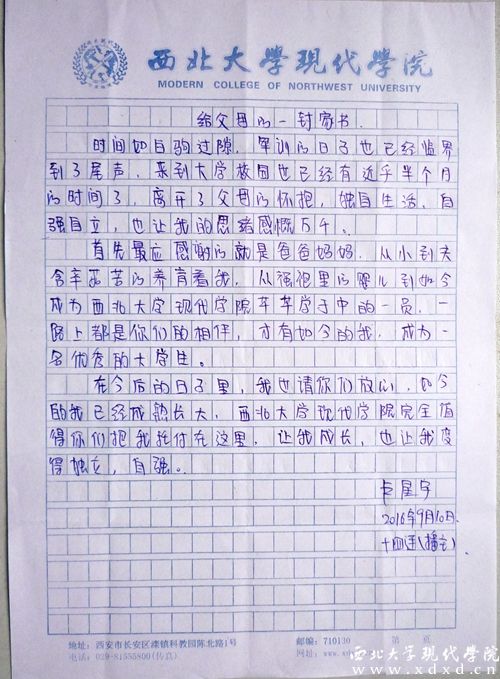 西北大學現代學院
MODERN COLLEGE OF NORTHWEST UNIVERSITY
给父母的一封家书.
时间如白驹过隙. 军训的日子也已经临界
到了尾声. 来到大学校园也已经有近乎半个月
的时间了, 离开了父母的怀抱, 独自生活, 自
强自立, 也让我的思绪感慨万千.
首先最应感谢的就是爸爸妈妈. 从小到大
含辛茹苦的养育着我. 从襁褓里的婴儿到如今
成为西北大学现代学院莘莘学子中的一员, 一
路上都是你们的相伴, 才有如今的我, 成为一
名优秀的大学生。
在今后的日子里, 我也请你们放心, 如今
的我已经成熟长大, 西北大学现代学院完全值
得你们把我托付在这里, 让我成长, 也让我变
得独立, 自强。
星宇
2016年9月10日.
十四连(播主).
地址: 西安市长安区滦镇科教园陈北路1号
邮编: 710130
第 页
电话: 029-81555800(传真)
网址: www.xd
西北大学现代学院
www.xdxd.cn